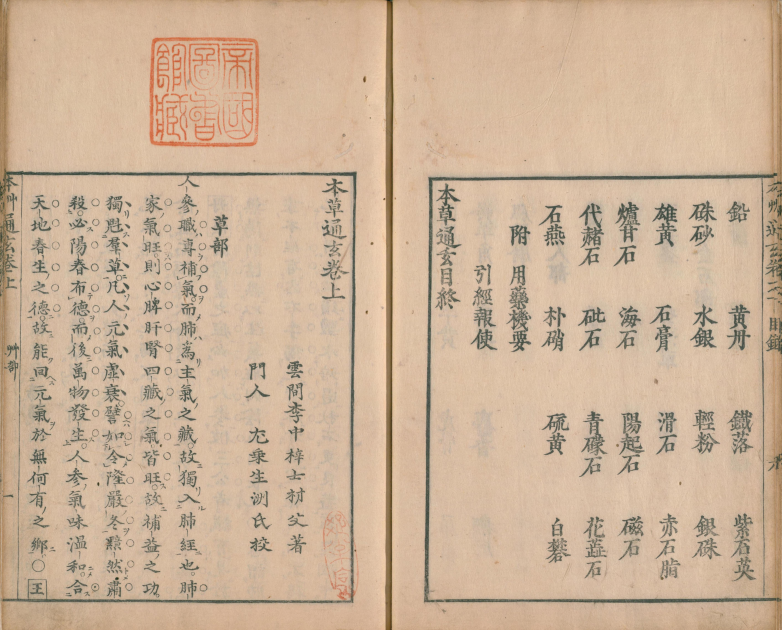 鉛　黃丹　鐵落　紫石英
硃砂　水銀　輕粉　銀硃
雄黃　石膏　滑石　赤石脂
爐甘石　海石　陽起石　磁石
代赭石　砒石　青礞石　花蕋石
石燕　朴硝　硫黃　白礬
附　用藥機要
引經報使
本草通玄目終
帝國
圖書
館藏
本草通玄卷上
雲間李中梓士材父著
門人　尤乘生洲氏校
草部
人參職專補氣而肺為主氣之藏故獨入肺經也肺
家氣旺則心脾肝腎四藏之氣皆旺故補益之功
獨魁羣草凡人元氣虛衰譬如令際嚴冬黯然肅
殺必陽春布德而後萬物發生人參氣味溫和合
天地春生之德故能回元氣於無何有之鄉○王
本艸通玄卷上　艸部　一